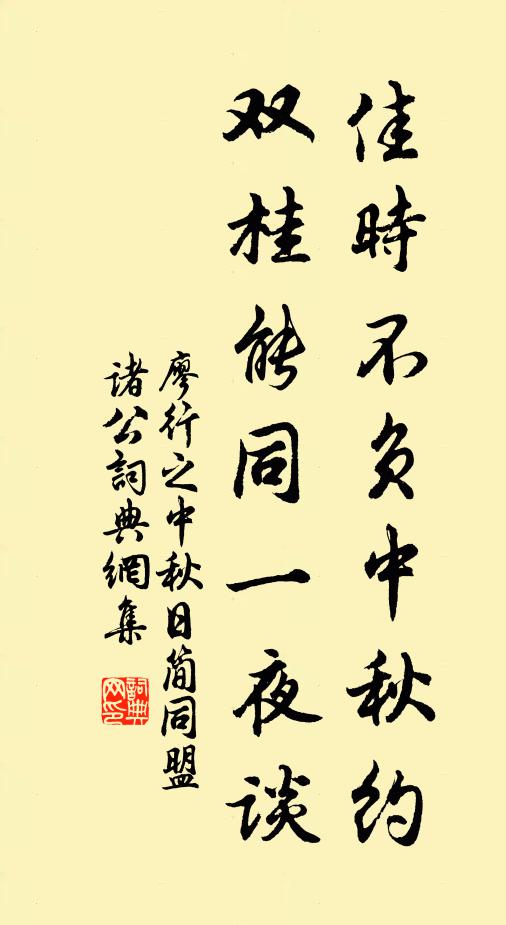 佳時不負中秋約
双桂能同一夜談
廖行之中秋日簡同盟
诸公詞典網集
詞典
网印